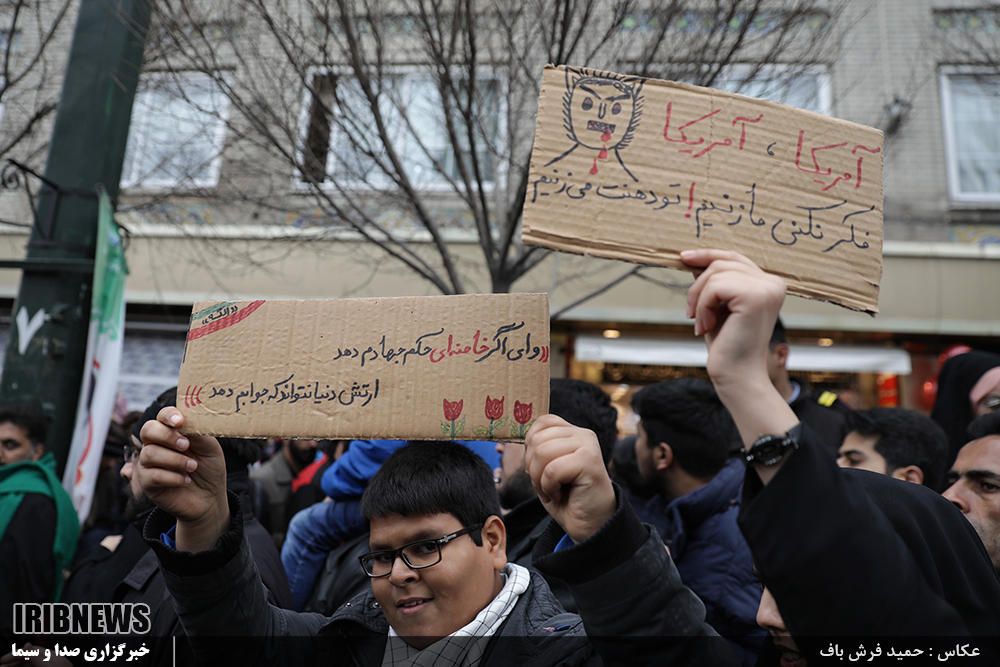 آمریکا ، آمریکا
فکر نکنی ما زنیم! تو دهنت می زنیم
«الله»
((وای اگر خامنه‌ای حکم جهادم دهد
ارتش دنیا نتواند که جوابم دهد )))
IRIBNEWS
خبرگزاری صدا و سیما
عکاس : حمید فرش باف